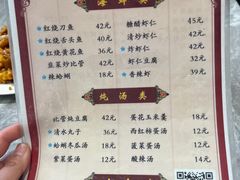 海鲜类
★红烧刀鱼 42元
★红烧舌头鱼 40元
★红烧黄花鱼 36元
韭菜炒比管 42元
辣蛤蜊 18元
糖醋虾仁 45元
清炒虾仁
★炸虾仁
★虾仁
★香辣虾 39元
炖汤类
比管炖豆腐 42元
★清水丸子 36元
★蛤蜊冬瓜汤 18元
紫菜蛋汤 12元
蛋花玉米羹 18元
西红柿蛋汤 12元
菠菜蛋汤 12元
酸辣汤 14元